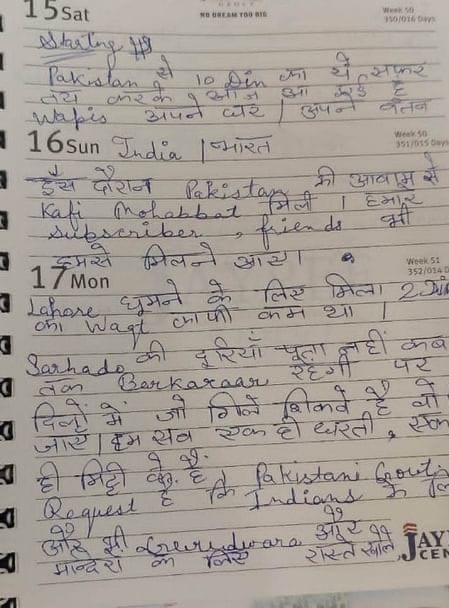 15 Sat
NO DREAM TOO BIG
Week 50
350/016 Days
Starting
Pakistan से 10 Din का ये सफर
तय करके आज आ गई है
Wapis अपने घर | अपने वतन
16 Sun India | भारत
Week 50
351/015 Days
इस दौरान Pakistan की आवाम से
Kafi Mohabbat मिली | हमारे
subscriber, friends भी
हमसे मिलने आए |
17 Mon
Week 51
352/014 D
Lahore घूमने के लिए मिला 2 Din
का Waqt काफी कम था |
Sarhado की दूरियाँ पता नहीं कब
तक Barkaraar रहेगी पर
दिलों में जो गिले शिकवे है वो
जाए | हम सब एक ही धरती, एक
ही मिट्टी के है | Pakistani Govt
Request है कि Indians के लि
और भी Gurudwara और
मन्दिरों के लिए रास्ते खोले
JAY
CEN